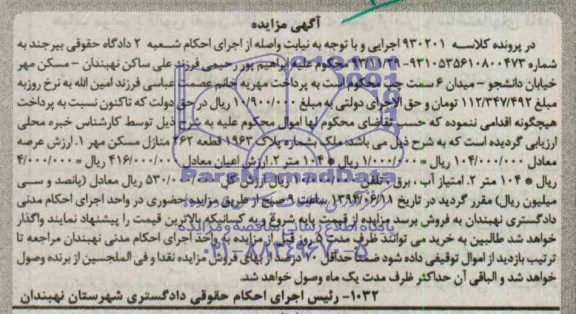 آگهی مزایده
در پرونده کلاسه ۹۳۰۲۰۱ اجرایی و با توجه به نیابت واصله از اجرای احکام شعبه ۲ دادگاه حقوقی بیرجند به
شماره ۹۳۱۰۵۳۵۶۱۰۸۰۰۴۷۳-۹۳/۱۱/۲۹ محکوم علیه ابراهیم پور رحیمی فرزند علی ساکن نهبندان - مسکن مهر
خیابان دانشجو - میدان ۶ سمت چپ محکوم است به پرداخت مهریه خانم عصمت عباسی فرزند امین الله به نرخ روز به
مبلغ ۱۱۲/۳۴۷/۴۹۲ تومان و حق الاجرای دولتی به مبلغ ۱۰/۹۰۰/۰۰۰ ریال در حق دولت که تاکنون نسبت به پرداخت
هیچگونه اقدامی ننموده که حسب تقاضای محکوم لها اموال محکوم علیه به شرح ذیل توسط کارشناس خبره محلی
ارزیابی گردیده است که به شرح ذیل می باشد: ملک بشماره پلاک ۱۹۶۳ قطعه ۲۶۲ منازل مسکن مهر ۱. ارزش عرصه
معادل ۱۰۴/۰۰۰/۰۰۰ ریال = ۱/۰۰۰/۰۰۰ ریال * ۱۰۴ متر ۲. ارزش اعیان معادل ۴۱۶/۰۰۰/۰۰۰ ریال = ۴/۰۰۰/۰۰۰
ریال * ۱۰۴ متر ۲. امتیاز آب، برق، تلفن ۱۰/۰۰۰/۰۰۰ ریال ارزش کل ۵۳۰/۰۰۰/۰۰۰ ریال معادل (پانصد و سی
میلیون ریال) مقرر گردید در تاریخ ۱۳۹۴/۰۶/۱۱ ساعت ۹ صبح از طریق مزایده حضوری در واحد اجرای احکام مدنی
دادگستری نهبندان به فروش برسد مزایده از قیمت پایه شروع و به کسانیکه بالاترین قیمت را پیشنهاد نمایند واگذار
خواهد شد طالبین به خرید می توانند ظرف مدت ۵ روز قبل از مزایده به واحد اجرای احکام مدنی نهبندان مراجعه تا
ترتیب بازدید از اموال توقیفی داده شود ضمنا حداقل ۷۰ درصد از بهای فروش مزایده نقدا و فی المجلسین از برنده وصول
خواهد شد و الباقی آن حداکثر ظرف مدت یک ماه وصول خواهد شد.
۱۰۳۲- رئیس اجرای احکام حقوقی دادگستری شهرستان نهبندان
ParsNamadData
پایگاه اطلاع رسانی مناقصه و مزایده
۰۲۱-۸۸۳۴۹۶۷۰-۵